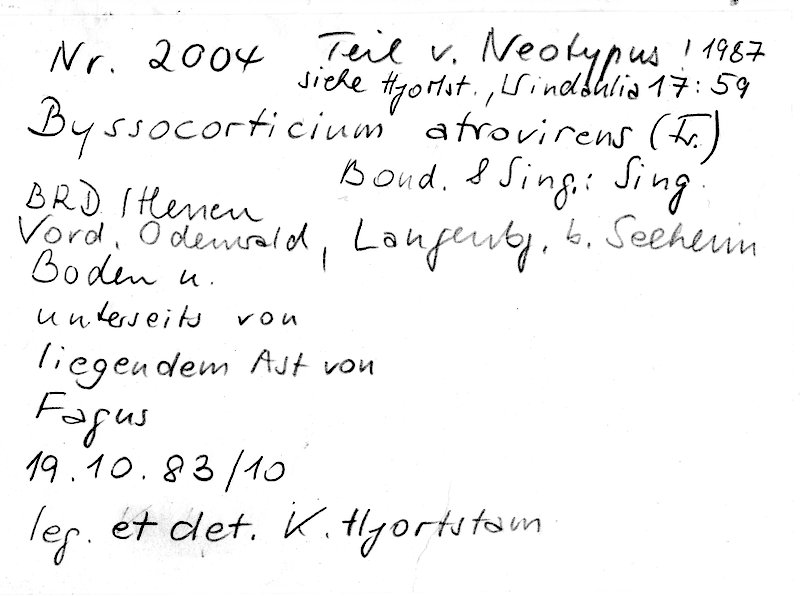 Nr. 2004 Teil v. Neotypus ! 1987
siehe Hjortst., Windahlia 17:59
Byssocorticium atrovirens (Fr.)
Bond. & Sing.: Sing.
BRD / Hessen
Vord. Odenwald, Langenbg. b. Seeheim
Boden u.
unterseits von
liegendem Ast von
Fagus
19.10.83/10
leg. et det. K. Hjortstam